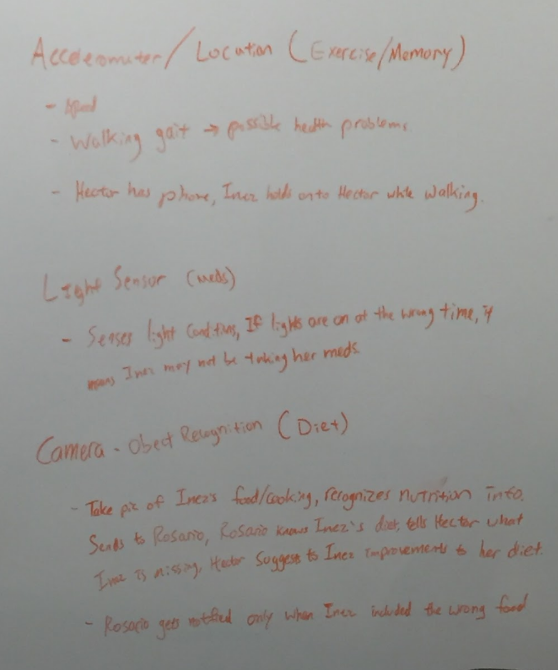 Accelerometer/Location (Exercise/Memory)
- speed
- Walking gait → possible health problems
- Hector has phone, Inez holds onto Hector while walking.
Light Sensor (meds)
- Senses light conditions, If lights are on at the wrong time, it
means Inez may not be taking her meds.
Camera - Obect Recognition (Diet)
- Take pic of Inez's food/cooking, recognizes nutrition info.
Sends to Rosario, Rosario knows Inez's diet, tells Hector what
Inez is missing, Hector suggests to Inez improvements to her diet.
- Rosario gets notified only when Inez included the wrong food